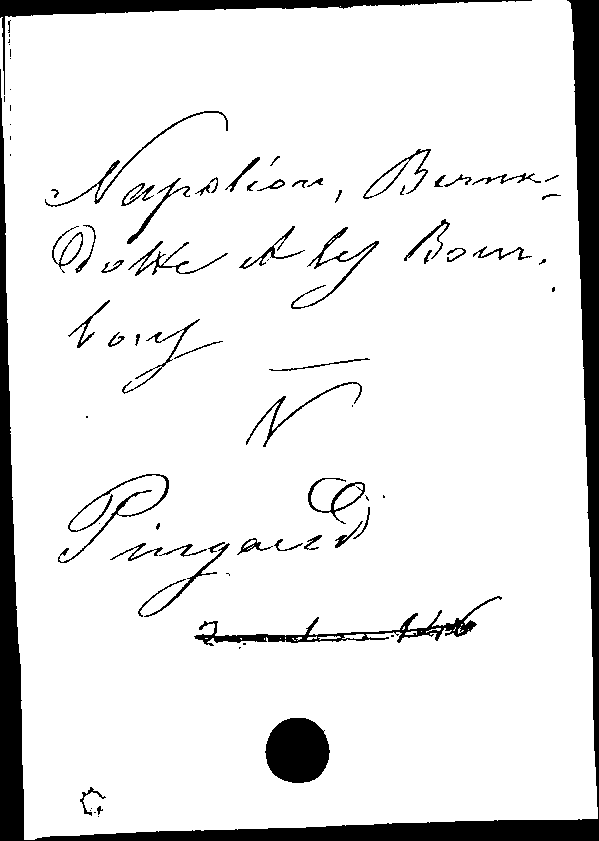 Napoléon, Berna-
dotte et les Bour.
bons
N
Pingaud